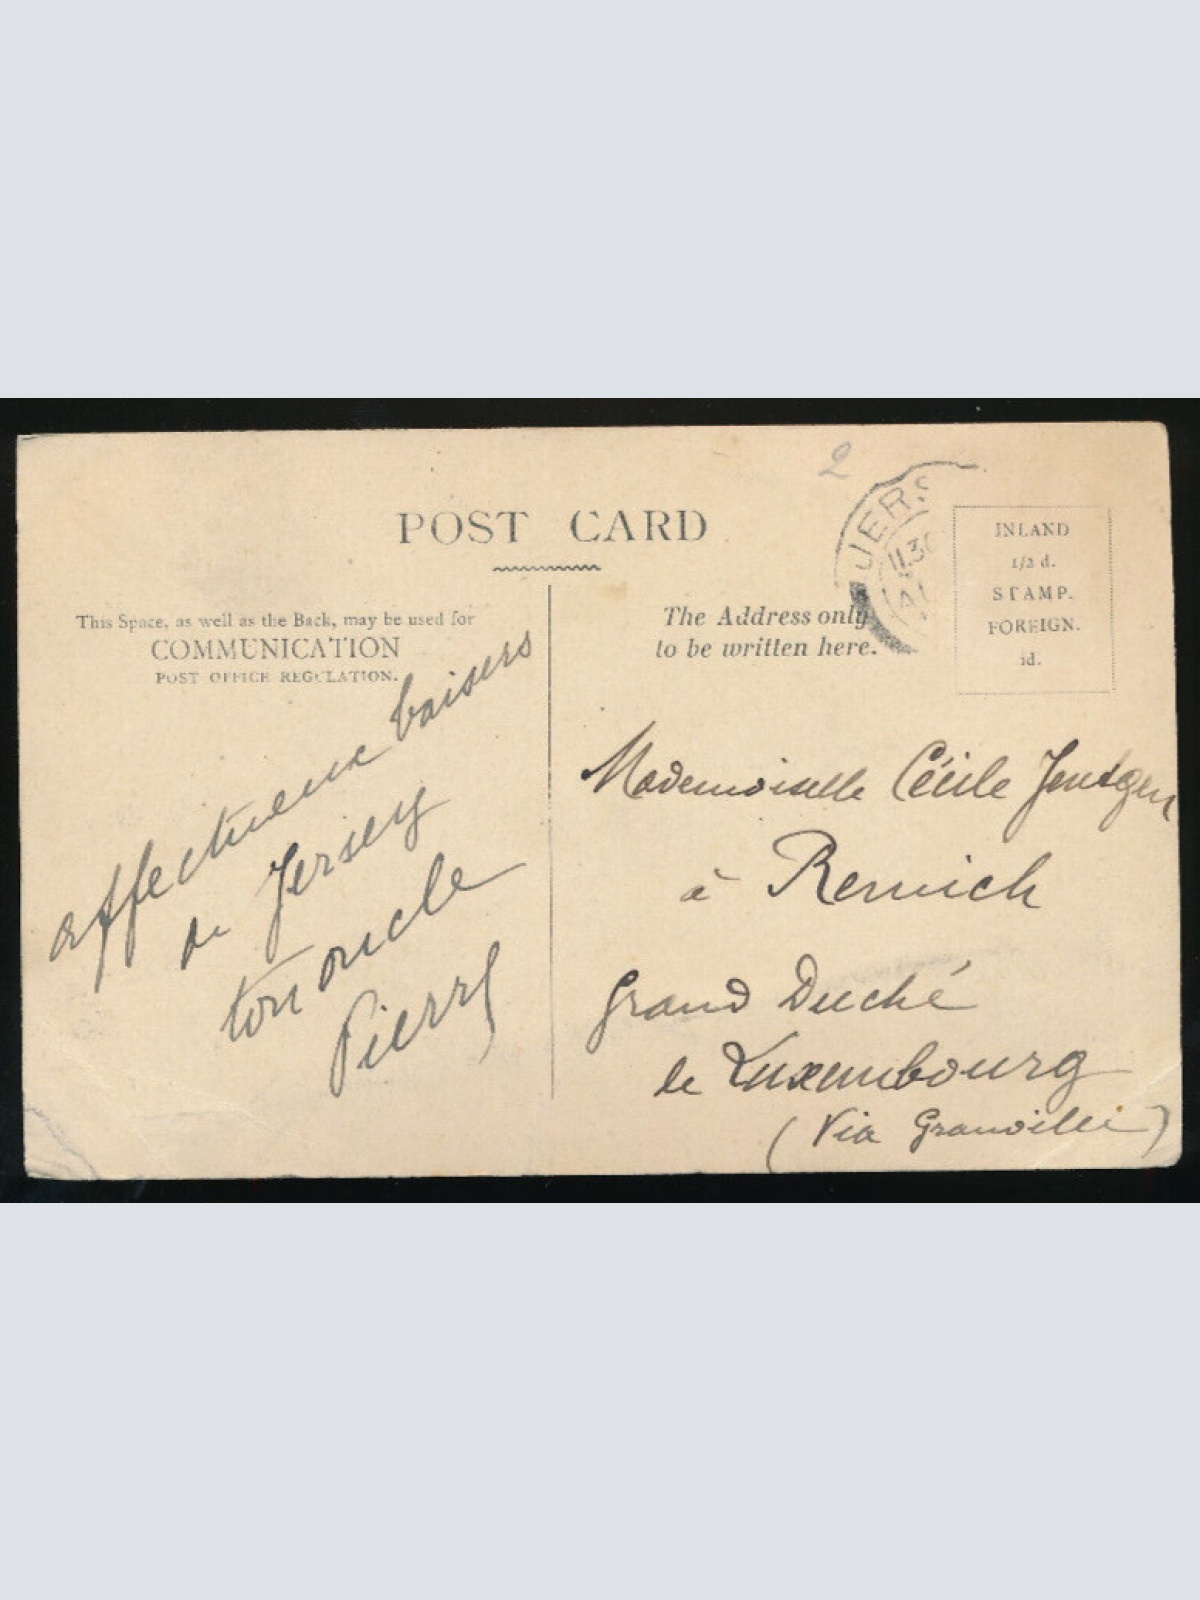 2
JERS
11.30
AU
POST CARD
INLAND
1/2 d.
STAMP.
FOREIGN.
1d.
This Space, as well as the Back, may be used for
COMMUNICATION
POST OFFICE REGULATION.
The Address only
to be written here.
affectueux baisers
de Jersey
ton oncle
Pierre
Mademoiselle Cécile Jentgen
à Remich
Grand Duché
de Luxembourg
(Via Granville)